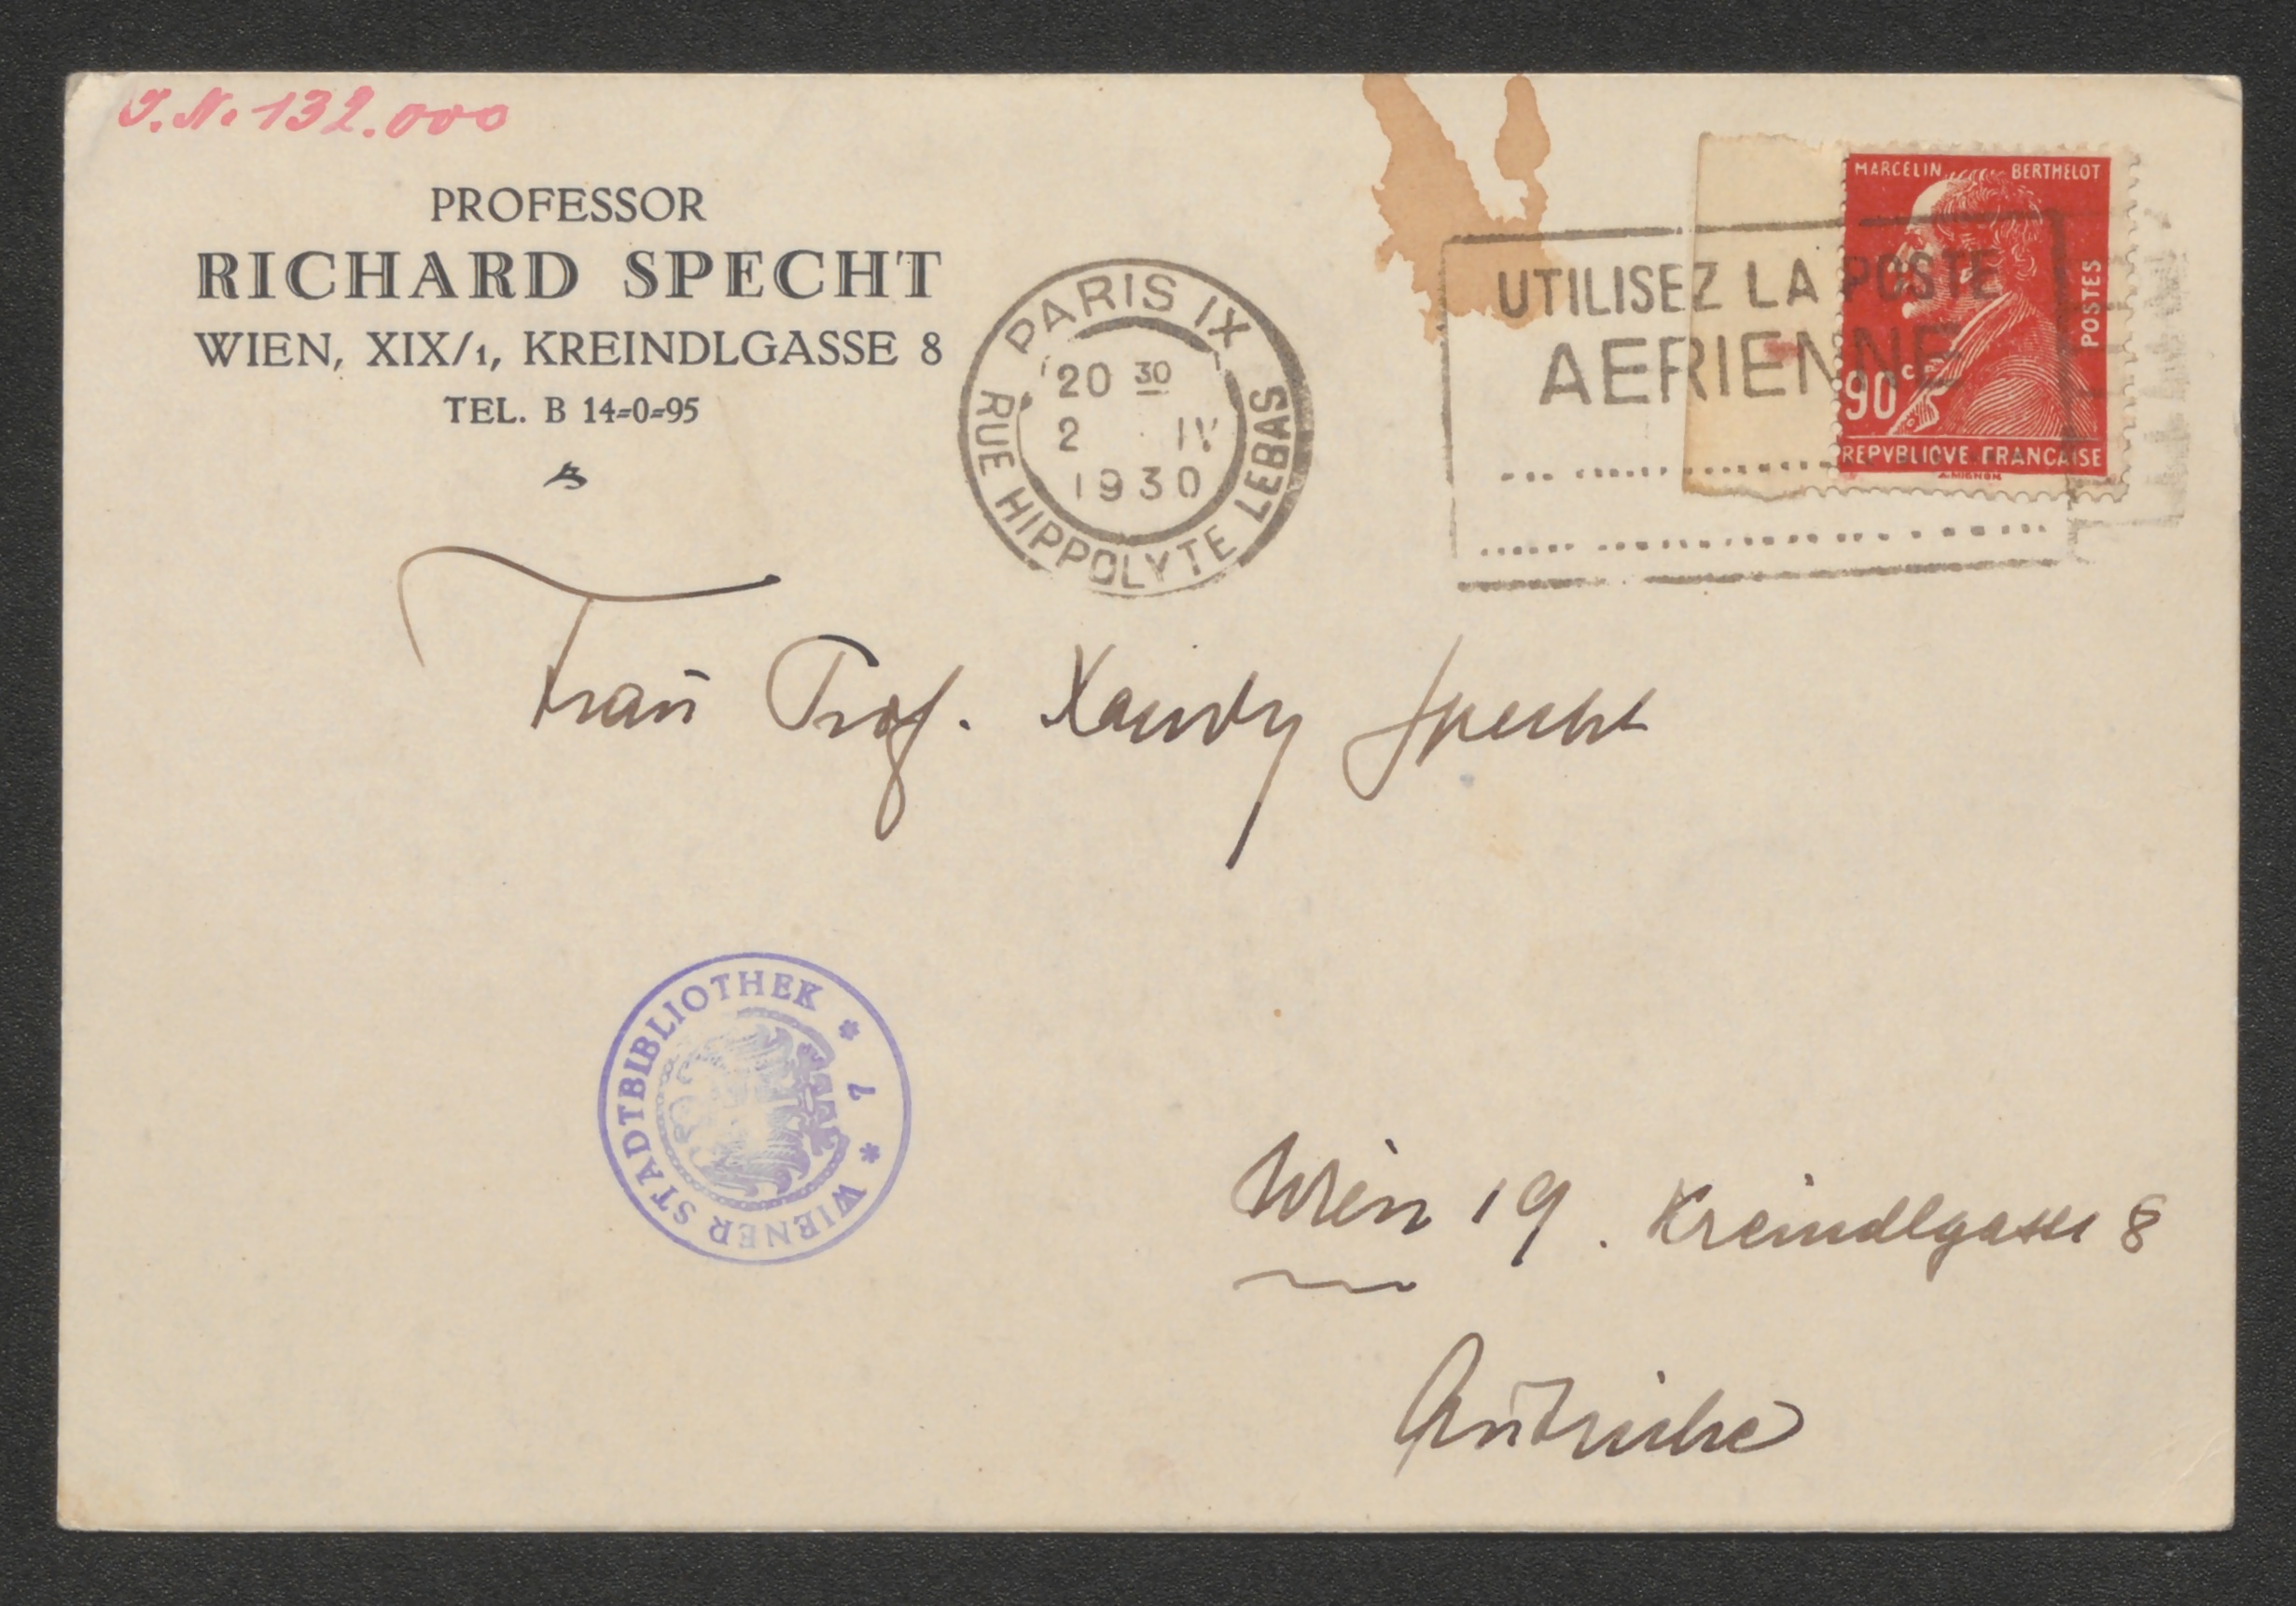 J.N. 132.000
PROFESSOR
RICHARD SPECHT
WIEN, XIX/1, KREINDLGASSE 8
TEL. B 14=0=95
PARIS IX
20 30
2 IV
1930
RUE HIPPOLYTE LEBAS
UTILISEZ LA POSTE
AERIENNE
MARCELIN BERTHELOT
POSTES
90 c
REPVBLIQVE FRANCAISE
A. MIGNON
Frau Prof. Xandy Specht
WIENER STADTBIBLIOTHEK * 7 *
Wien 19. Kreindlgasse 8
Autriche